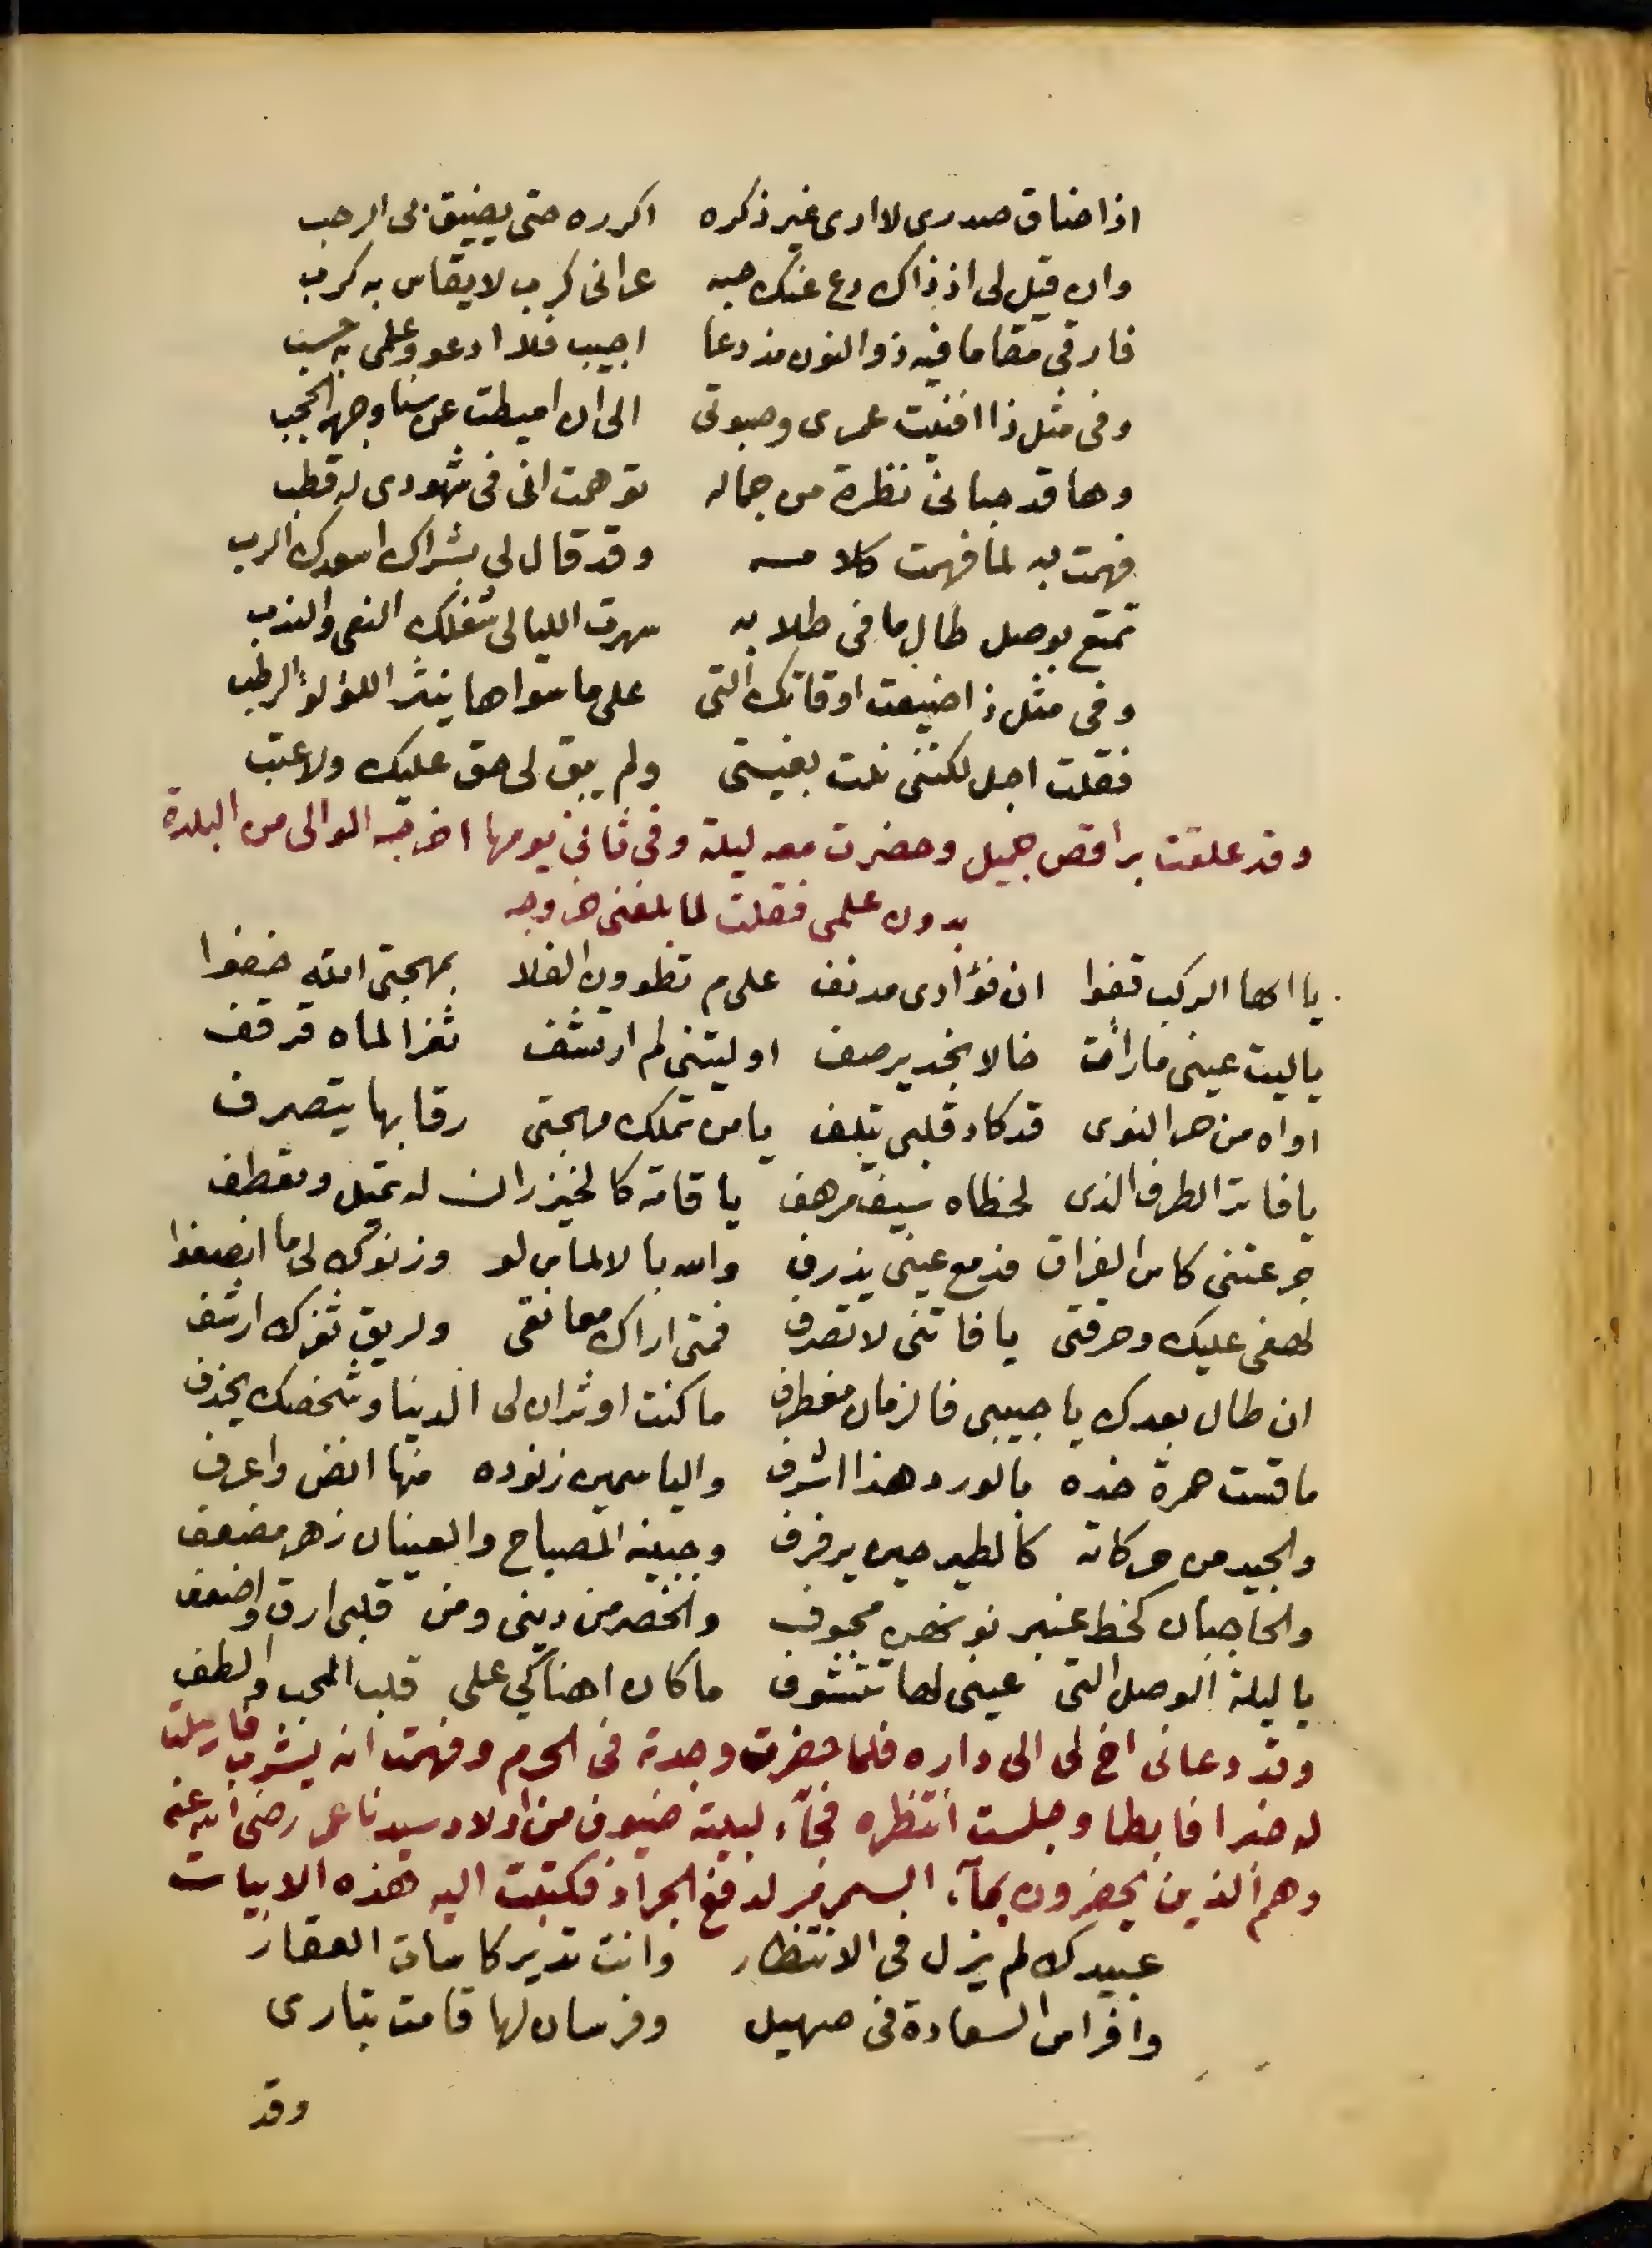 اذا ضاق صدرى لا ارى غير ذكره اكرره حتى يضيق بى الرحب
وان قيل لى اذ ذاك دع عنك حبه عرانى كرب لا يقاس به كرب
فارقى مقاما فيه ذو النون مذ دعا اجيب فلا ادعو وعلمى به حسب
وفى مثل ذا افنيت عمرى وصبوتى الى ان اميطت عن سنا وجهه الحجب
وها قد حبانى نظرة من جماله توهمت انى فى شهودى له قطب
فهمت به لما فهمت كلامه وقد قال لى بشراك اسعدك الرب
تمتع بوصل طال ما فى طلابه سهرت الليالى شغلك النعى والندب
وفى مثل ذا ضيعت اوقاتك التى على ما سواها ينثر اللؤلؤ الرطب
فقلت اجل لكننى نلت بغيتى ولم يبق لى حق عليك ولا عتب
وقد علقت براقص جميل وحضرت معه ليلة وفى ثانى يومها اخرجه الوالى من البلدة
بدون علمى فقلت لما بلغنى خروجه
يا ايها الركب قفوا ان فؤادى مدنف على م تطوون الفلا بمهجتى الله خففوا
يا ليت عينى ما رأت خالا بخد يرصف او ليتنى لم ارتشف ثغرا لماه قرقف
اواه من حر النوى قد كاد قلبى يتلف يا من تملك مهجتى رقا بها يتصرف
يا فاتر الطرف الذى لحظاه سيف مرهف يا قامة كالخيزران له تميل وتعطف
جرعتنى كاس الفراق فدمع عينى يذرف والله بالالماس لو وزنوك لى ما انصفوا
لهفى عليك وحرقتى يا فاتنى لا تصرف فمتى اراك معانقى ولريق ثغرك ارشف
ان طال بعدك يا حبيبى فالزمان مغطرف ما كنت اوثر ان لى الدنيا وشخصك يحذف
ما قست حمرة خده بالورد هذا اشرف والياسمين زنوده منها اغض واعرف
والجيد من حركاته كالطير حين يرفرف وجبينه المصباح والعينان زهر مضعف
والحاجبان كخط عنبر نونصين مجوف والخصر من دينى ومن قلبى ارق واضعف
يا ليلة الوصل التى عينى لها تتشوف ما كان اهناكى على قلب المحب والطف
وقد دعانى اخ لى الى داره فلما حضرت وجدته فى الحرم وفهمت انه يشرب فارسلت
له خبرا فابطا وجلست انتظره فجآء لبيته ضيوف من اولاد سيدنا عمر رضى الله عنه
وهم الذين يحضرون بمآء السمرمر لدفع الجراد فكتبت اليه هذه الابيات
عبيدك لم يزل فى الانتظار وانت تدير كاسات العقار
وافراس السعادة فى صهيل وفرسان لها قامت تبارى
وقد